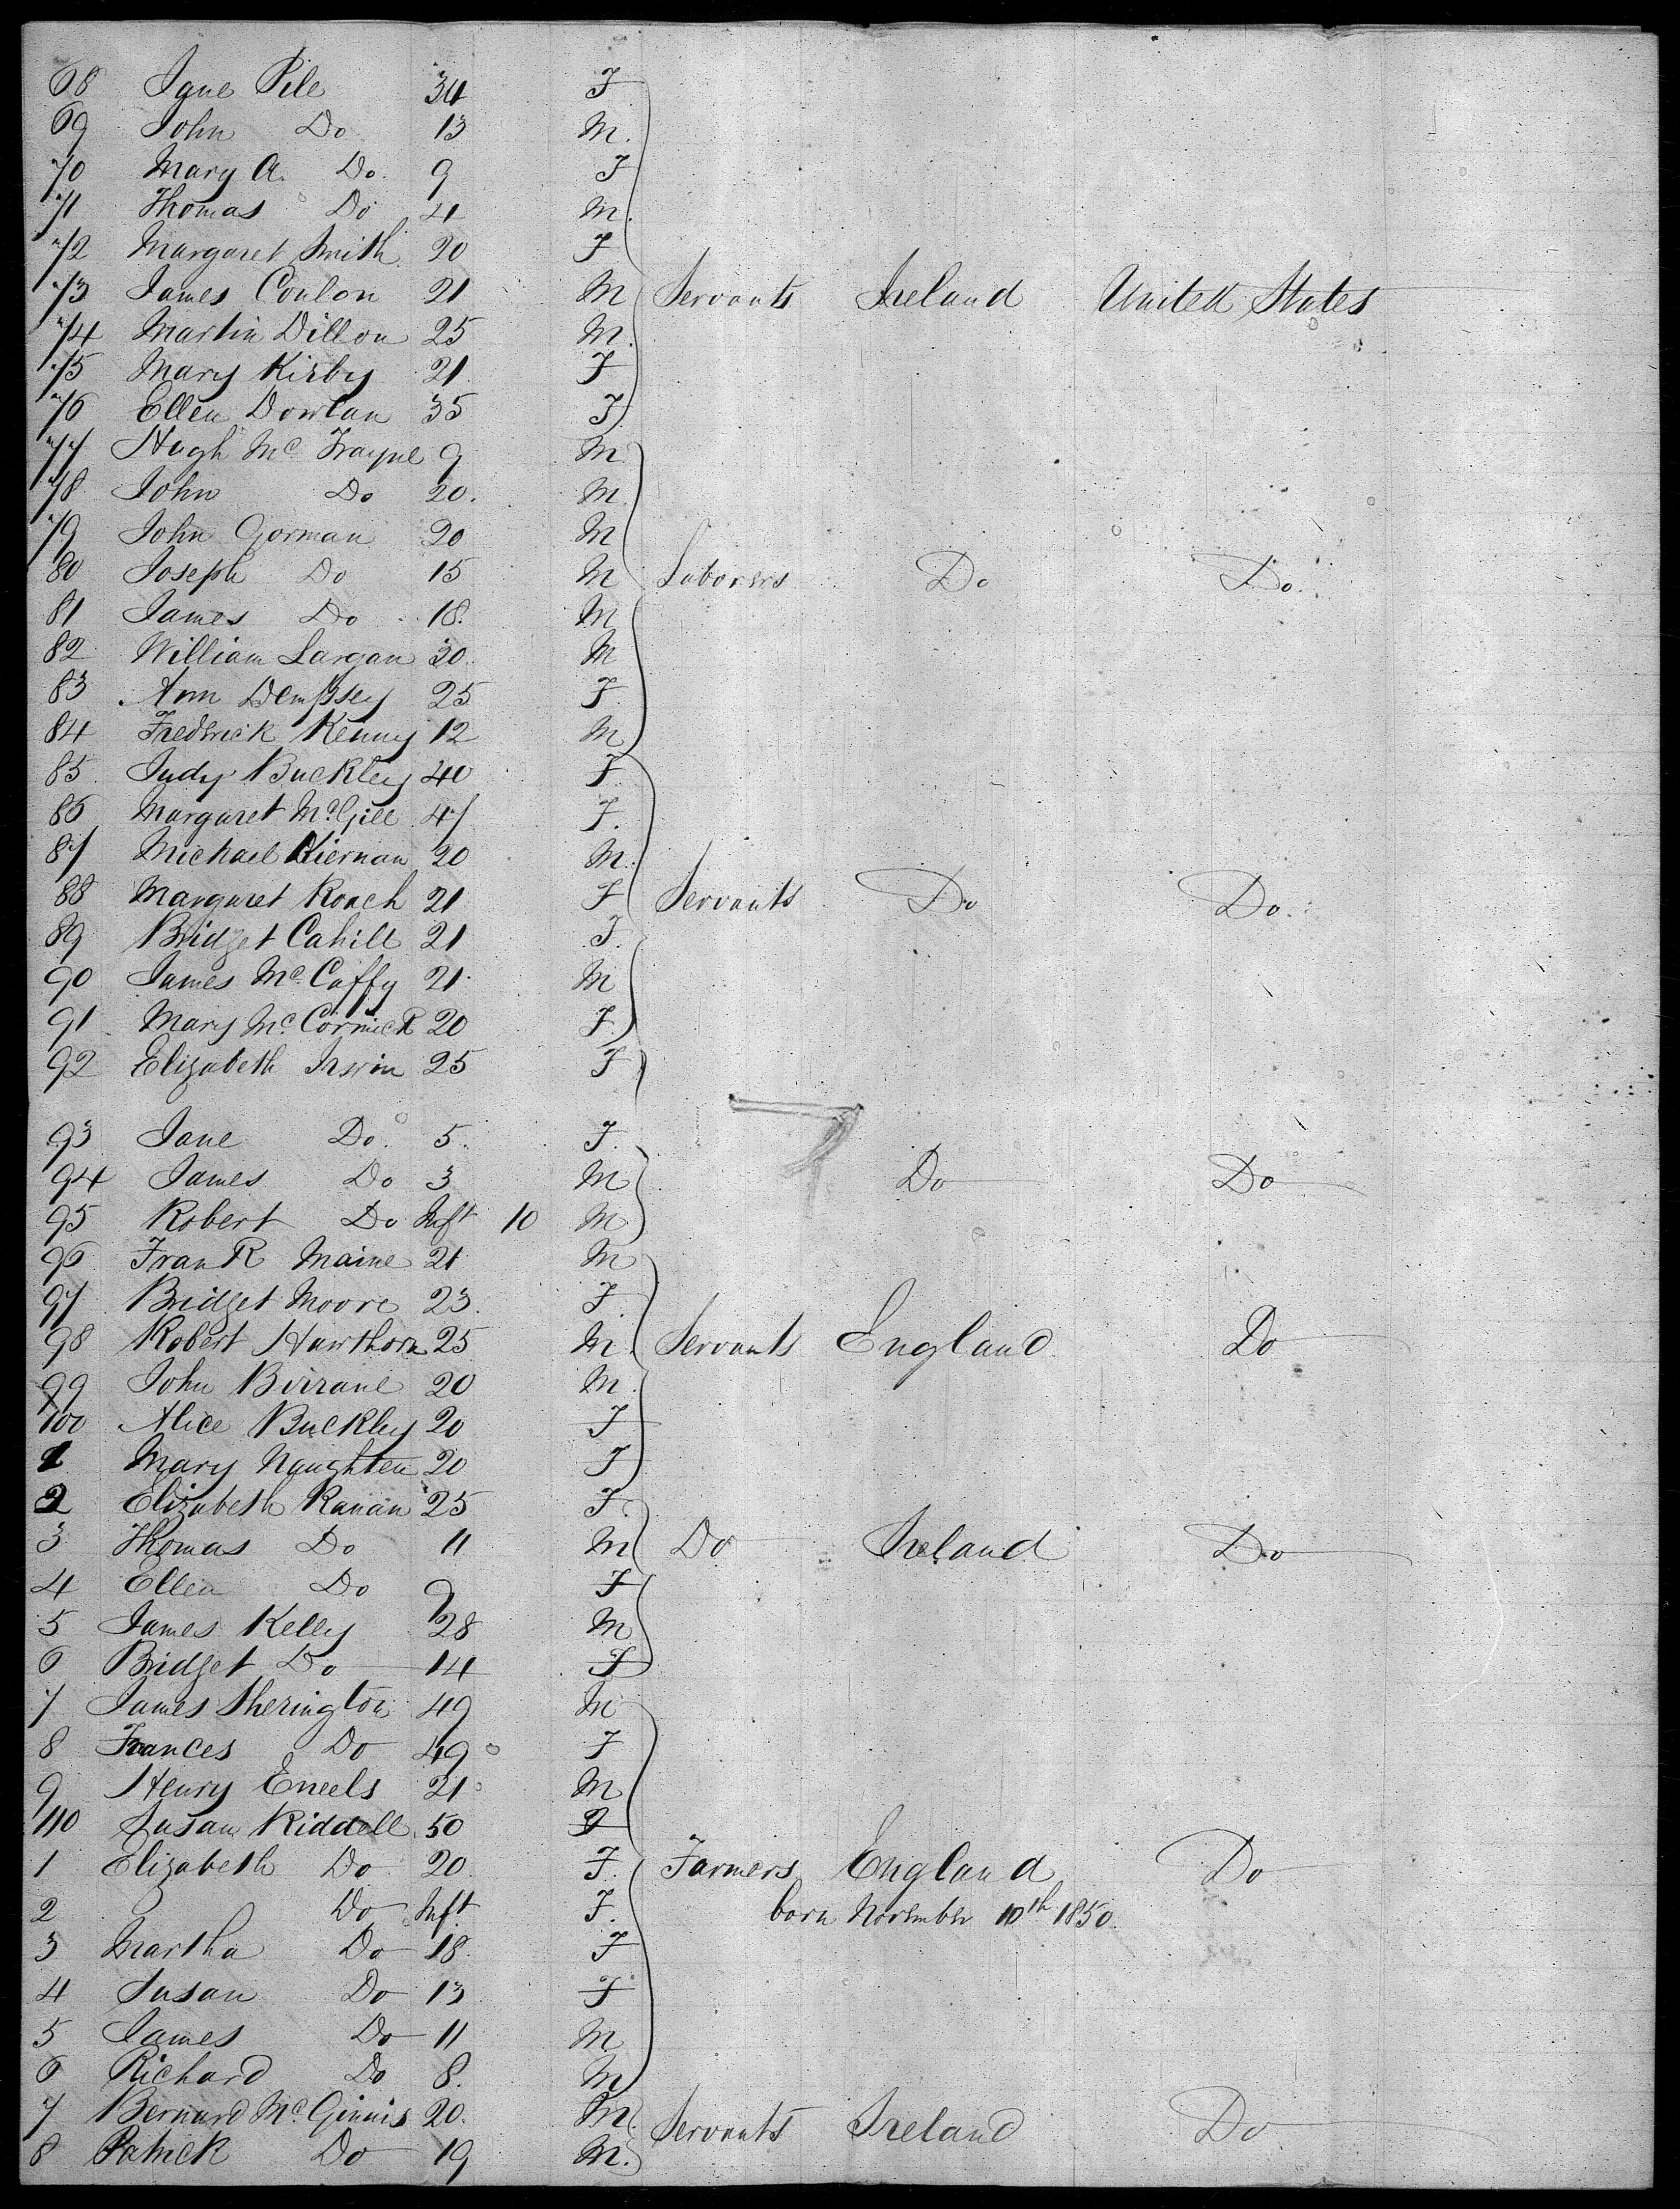 68 Jane Pile 34 F
69 John Do 13 M.
70 Mary A. Do. 9 F
71 Thomas Do 4 M.
72 Margaret Smith 20 F
73 James Conlon 21 M Servants Ireland United States
74 Martin Dillon 25 M.
75 Mary Kirby 21 F
76 Ellen Dowlan 35 F
77 Hugh Mc Frayne 9 M
78 John Do 20. M
79 John Gorman 20 M
80 Joseph Do 15 M Laborers Do Do.
81 James Do 18. M
82 William Largan 30. M
83 Ann Dempsey 25 F
84 Fredrick Kenny 12 M
85 Judy Buckley 40 F
86 Margaret Mc Gill 47 F.
87 Michael Kiernan 20 M.
88 Margaret Roach 21 F Servants Do Do.
89 Bridget Cahill 21 F.
90 James Mc Caffy 21. M
91 Mary Mc Cormick 20 F.
92 Elizabeth Irwin 25 F
93 Jane Do. 5. F.
94 James Do 3 M Do Do
95 Robert Do Inft 10 M
96 Frank Maine 21 M
97 Bridget Moore 23. F.
98 Robert Hawthorn 25 M. Servants England Do
99 John Birrane 20 M.
100 Alice Buckley 20 F
1 Mary Naughten 20 F
2 Elizabeth Ranan 25 F.
3 Thomas Do 11 M Do Ireland Do
4 Ellen Do 9 F
5 James Kelly 28 M
6 Bridget Do 14 F
7 James Sherington 49 M
8 Frances Do 49 F
9 Henry Eneels 21 M
110 Susan Riddell 50 F
1 Elizabeth Do 20. F. Farmers England Do
2 Do Inft F. born November 10th 1850.
3 Martha Do 18. F
4 Susan Do 13 F
5 James Do 11 M
6 Richard Do 8. M
7 Bernard Mc Ginnis 20. M. Servants Ireland Do
8 Patrick Do 19 M.